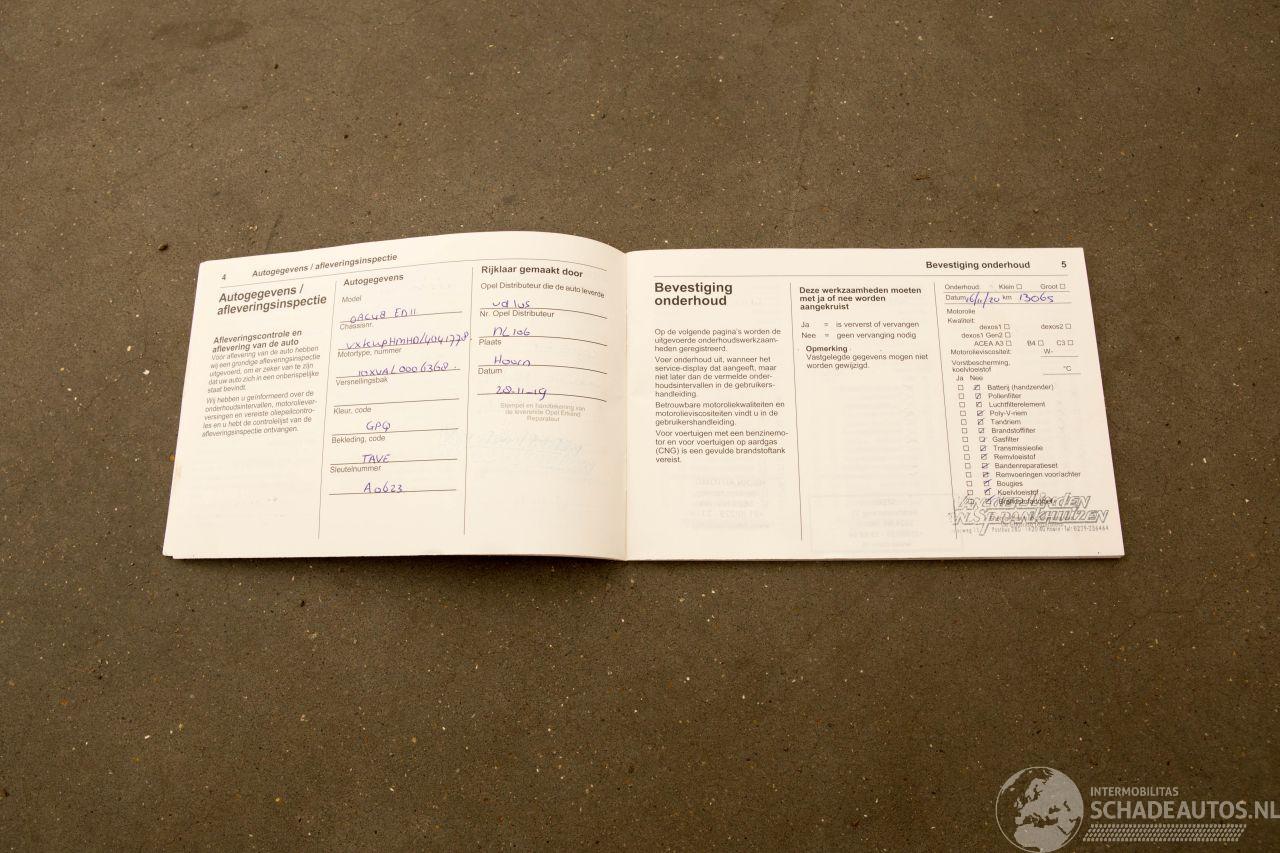 4
Autogegevens / afleveringsinspectie
Autogegevens /
afleveringsinspectie
Afleveringscontrole en
aflevering van de auto
Voor aflevering van de auto hebben
wij een grondige afleveringsinspectie
uitgevoerd, om er zeker van te zijn
dat uw auto zich in een onberispelijke
staat bevindt.
Wij hebben u geïnformeerd over de
onderhoudsintervallen, motoroliever-
versingen en vereiste oliepeilcontro-
les en u hebt de controlelijst van de
afleveringsinspectie ontvangen.
Autogegevens
Model
Chassisnr.
Motortype, nummer
Versnellingsbak
Kleur, code
GPQ
Bekleding, code
TAVE
Sleutelnummer
A0623
Rijklaar gemaakt door
Opel Distributeur die de auto leverde
Nr. Opel Distributeur
NL106
Plaats
Hoorn
Datum
28-11-19
Stempel en handtekening van
de leverende Opel Erkend
Reparateur
Bevestiging onderhoud 5
Bevestiging
onderhoud
Op de volgende pagina's worden de
uitgevoerde onderhoudswerkzaam-
heden geregistreerd.
Voer onderhoud uit, wanneer het
service-display dat aangeeft, maar
niet later dan de vermelde onder-
houdsintervallen in de gebruikers-
handleiding.
Betrouwbare motoroliekwaliteiten en
motorolieviscositeiten vindt u in de
gebruikershandleiding.
Voor voertuigen met een benzinemo-
tor en voor voertuigen op aardgas
(CNG) is een gevulde brandstoftank
vereist.
Deze werkzaamheden moeten
met ja of nee worden
aangekruist
Ja = is ververst of vervangen
Nee = geen vervanging nodig
Opmerking
Vastgelegde gegevens mogen niet
worden gewijzigd.
Onderhoud: Klein ☐ Groot ☐
Datum 16/11/20 km 13065
Motorolie
Kwaliteit:
dexos1 ☐ dexos2 ☐
dexos1 Gen2 ☐
ACEA A3 ☐ B4 ☐ C3 ☐
Motorolieviscositeit: W-
Vorstbescherming,
koelvloeistof °C
Ja Nee
☐ ☑ Batterij (handzender)
☐ ☑ Pollenfilter
☐ ☑ Luchtfilterelement
☐ ☑ Poly-V-riem
☐ ☑ Tandriem
☐ ☑ Brandstoffilter
☐ ☑ Gasfilter
☐ ☑ Transmissieolie
☐ ☑ Remvloeistof
☐ ☑ Bandenreparatieset
☐ ☑ Remvoeringen voor/achter
☐ ☑ Bougies
☐ ☑ Koelvloeistof
INTERMOBILITAS
SCHADEAUTOS.NL